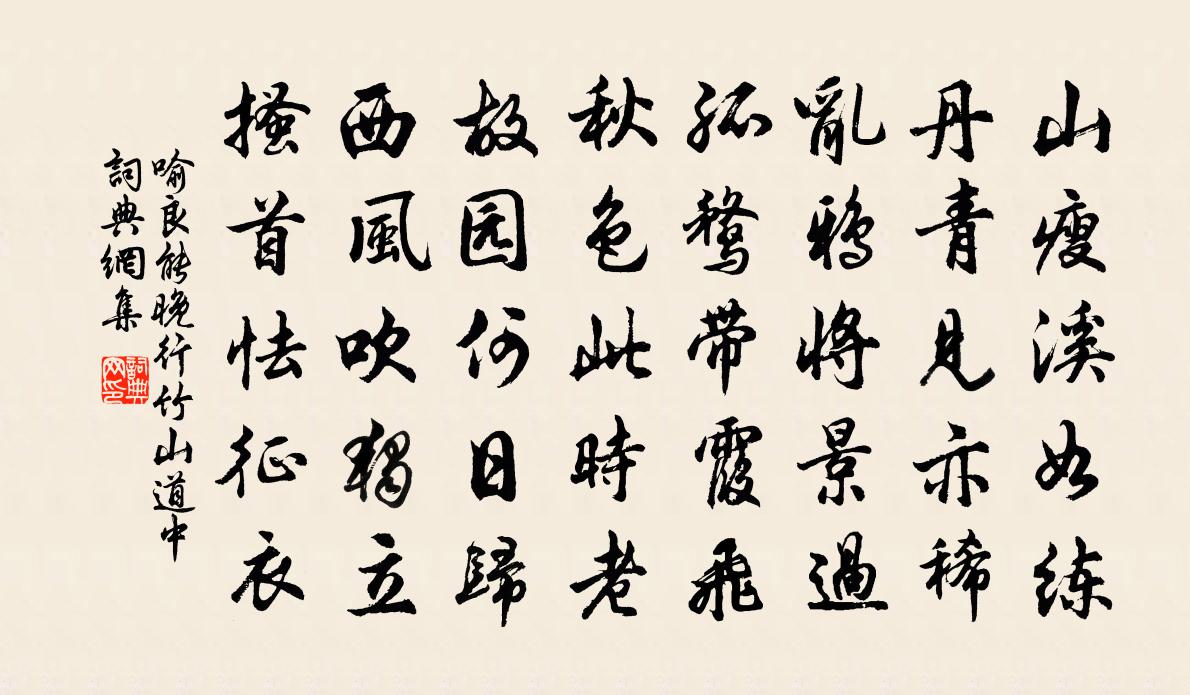 山瘦溪如练
丹青見亦稀
亂鴉將景過
孤鶩帶霞飛
秋色此時老
故园何日歸
西風吹獨立
搔首怯征衣
喻良能晚行竹山道中
詞典網集
詞典网印